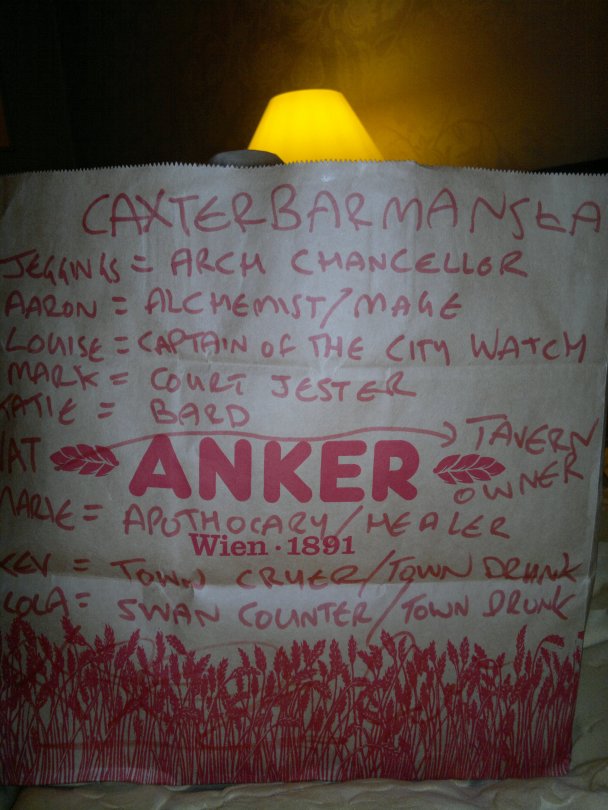 CAXTERBARMANSEA
JEGGINGS = ARCH CHANCELLOR
AARON = ALCHEMIST/MAGE
LOUISE = CAPTAIN OF THE CITY WATCH
MARK = COURT JESTER
KATIE = BARD
NAT → TAVERN OWNER
ANKER
MARIE = APOTHOCARY/HEALER
Wien · 1891
KEV = TOWN CRUER/TOWN DRUNK
LOLA = SWAN COUNTER/TOWN DRUNK